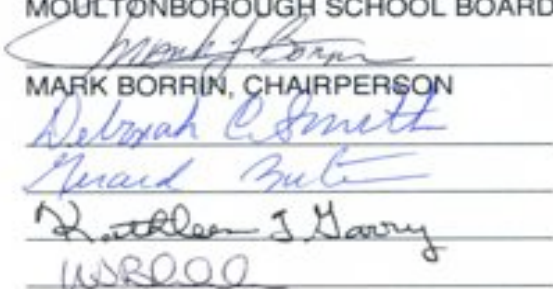 MOULTONBOROUGH SCHOOL BOARD
Mark J Borrin
MARK BORRIN, CHAIRPERSON
Deborah C. Smith
Gerard
Kathleen J Garry